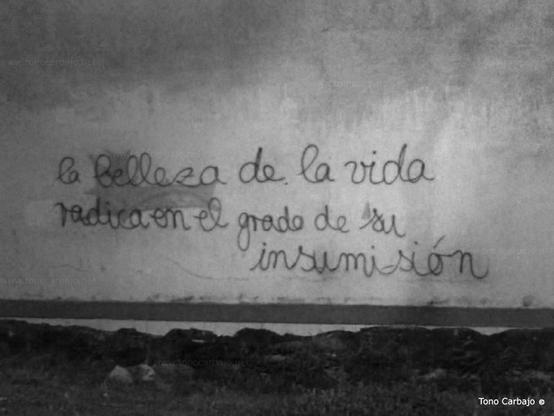 la belleza de la vida
radica en el grado de su
insumisión
Tono Carbajo ©